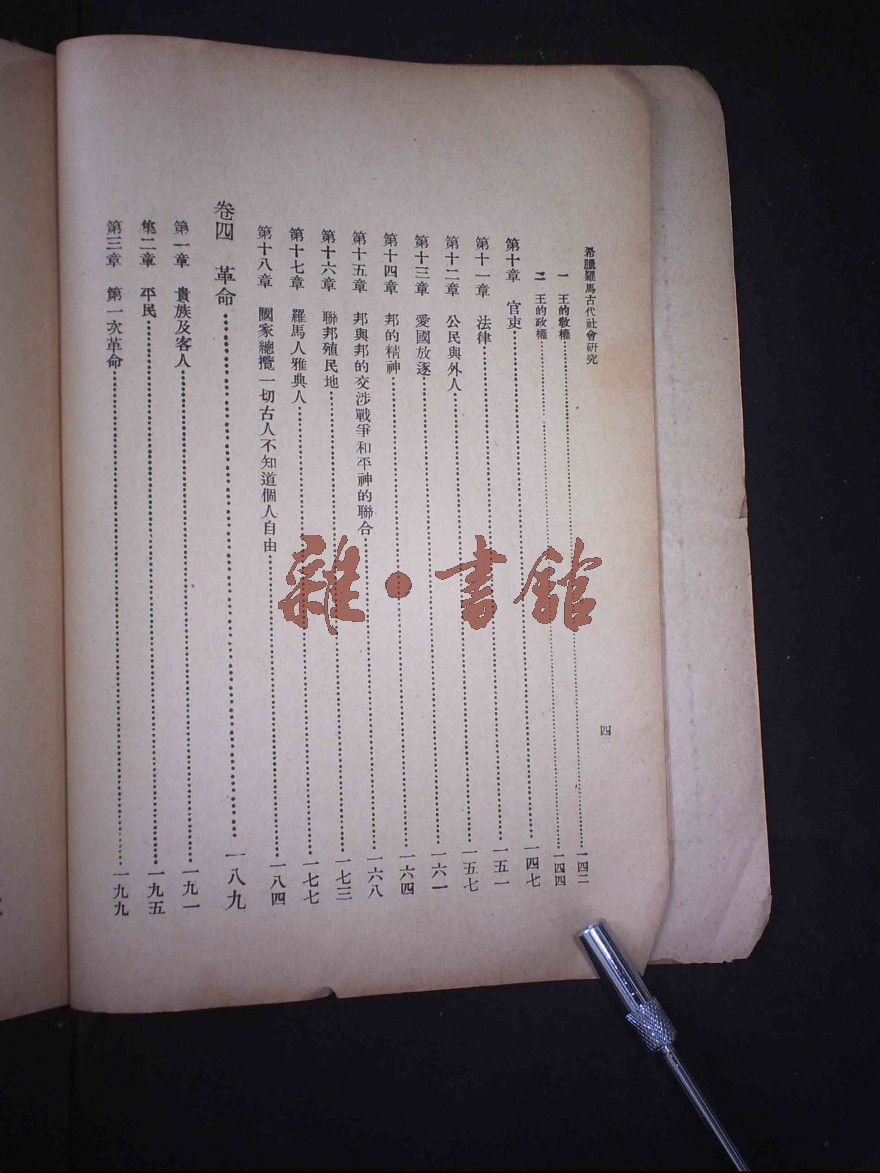 希臘羅馬古代社會研究
四
一 王的敎權 一四二
二 王的政權 一四四
第十章 官吏 一四七
第十一章 法律 一五一
第十二章 公民與外人 一五七
第十三章 愛國放逐 一六一
第十四章 邦的精神 一六四
第十五章 邦與邦的交涉戰爭和平神的聯合 一六八
第十六章 聯邦殖民地 一七三
第十七章 羅馬人雅典人 一七七
第十八章 國家總攬一切古人不知道個人自由 一八四
卷四 革命 一八九
第一章 貴族及客人 一九一
第二章 平民 一九五
第三章 第一次革命 一九九
雜·書館